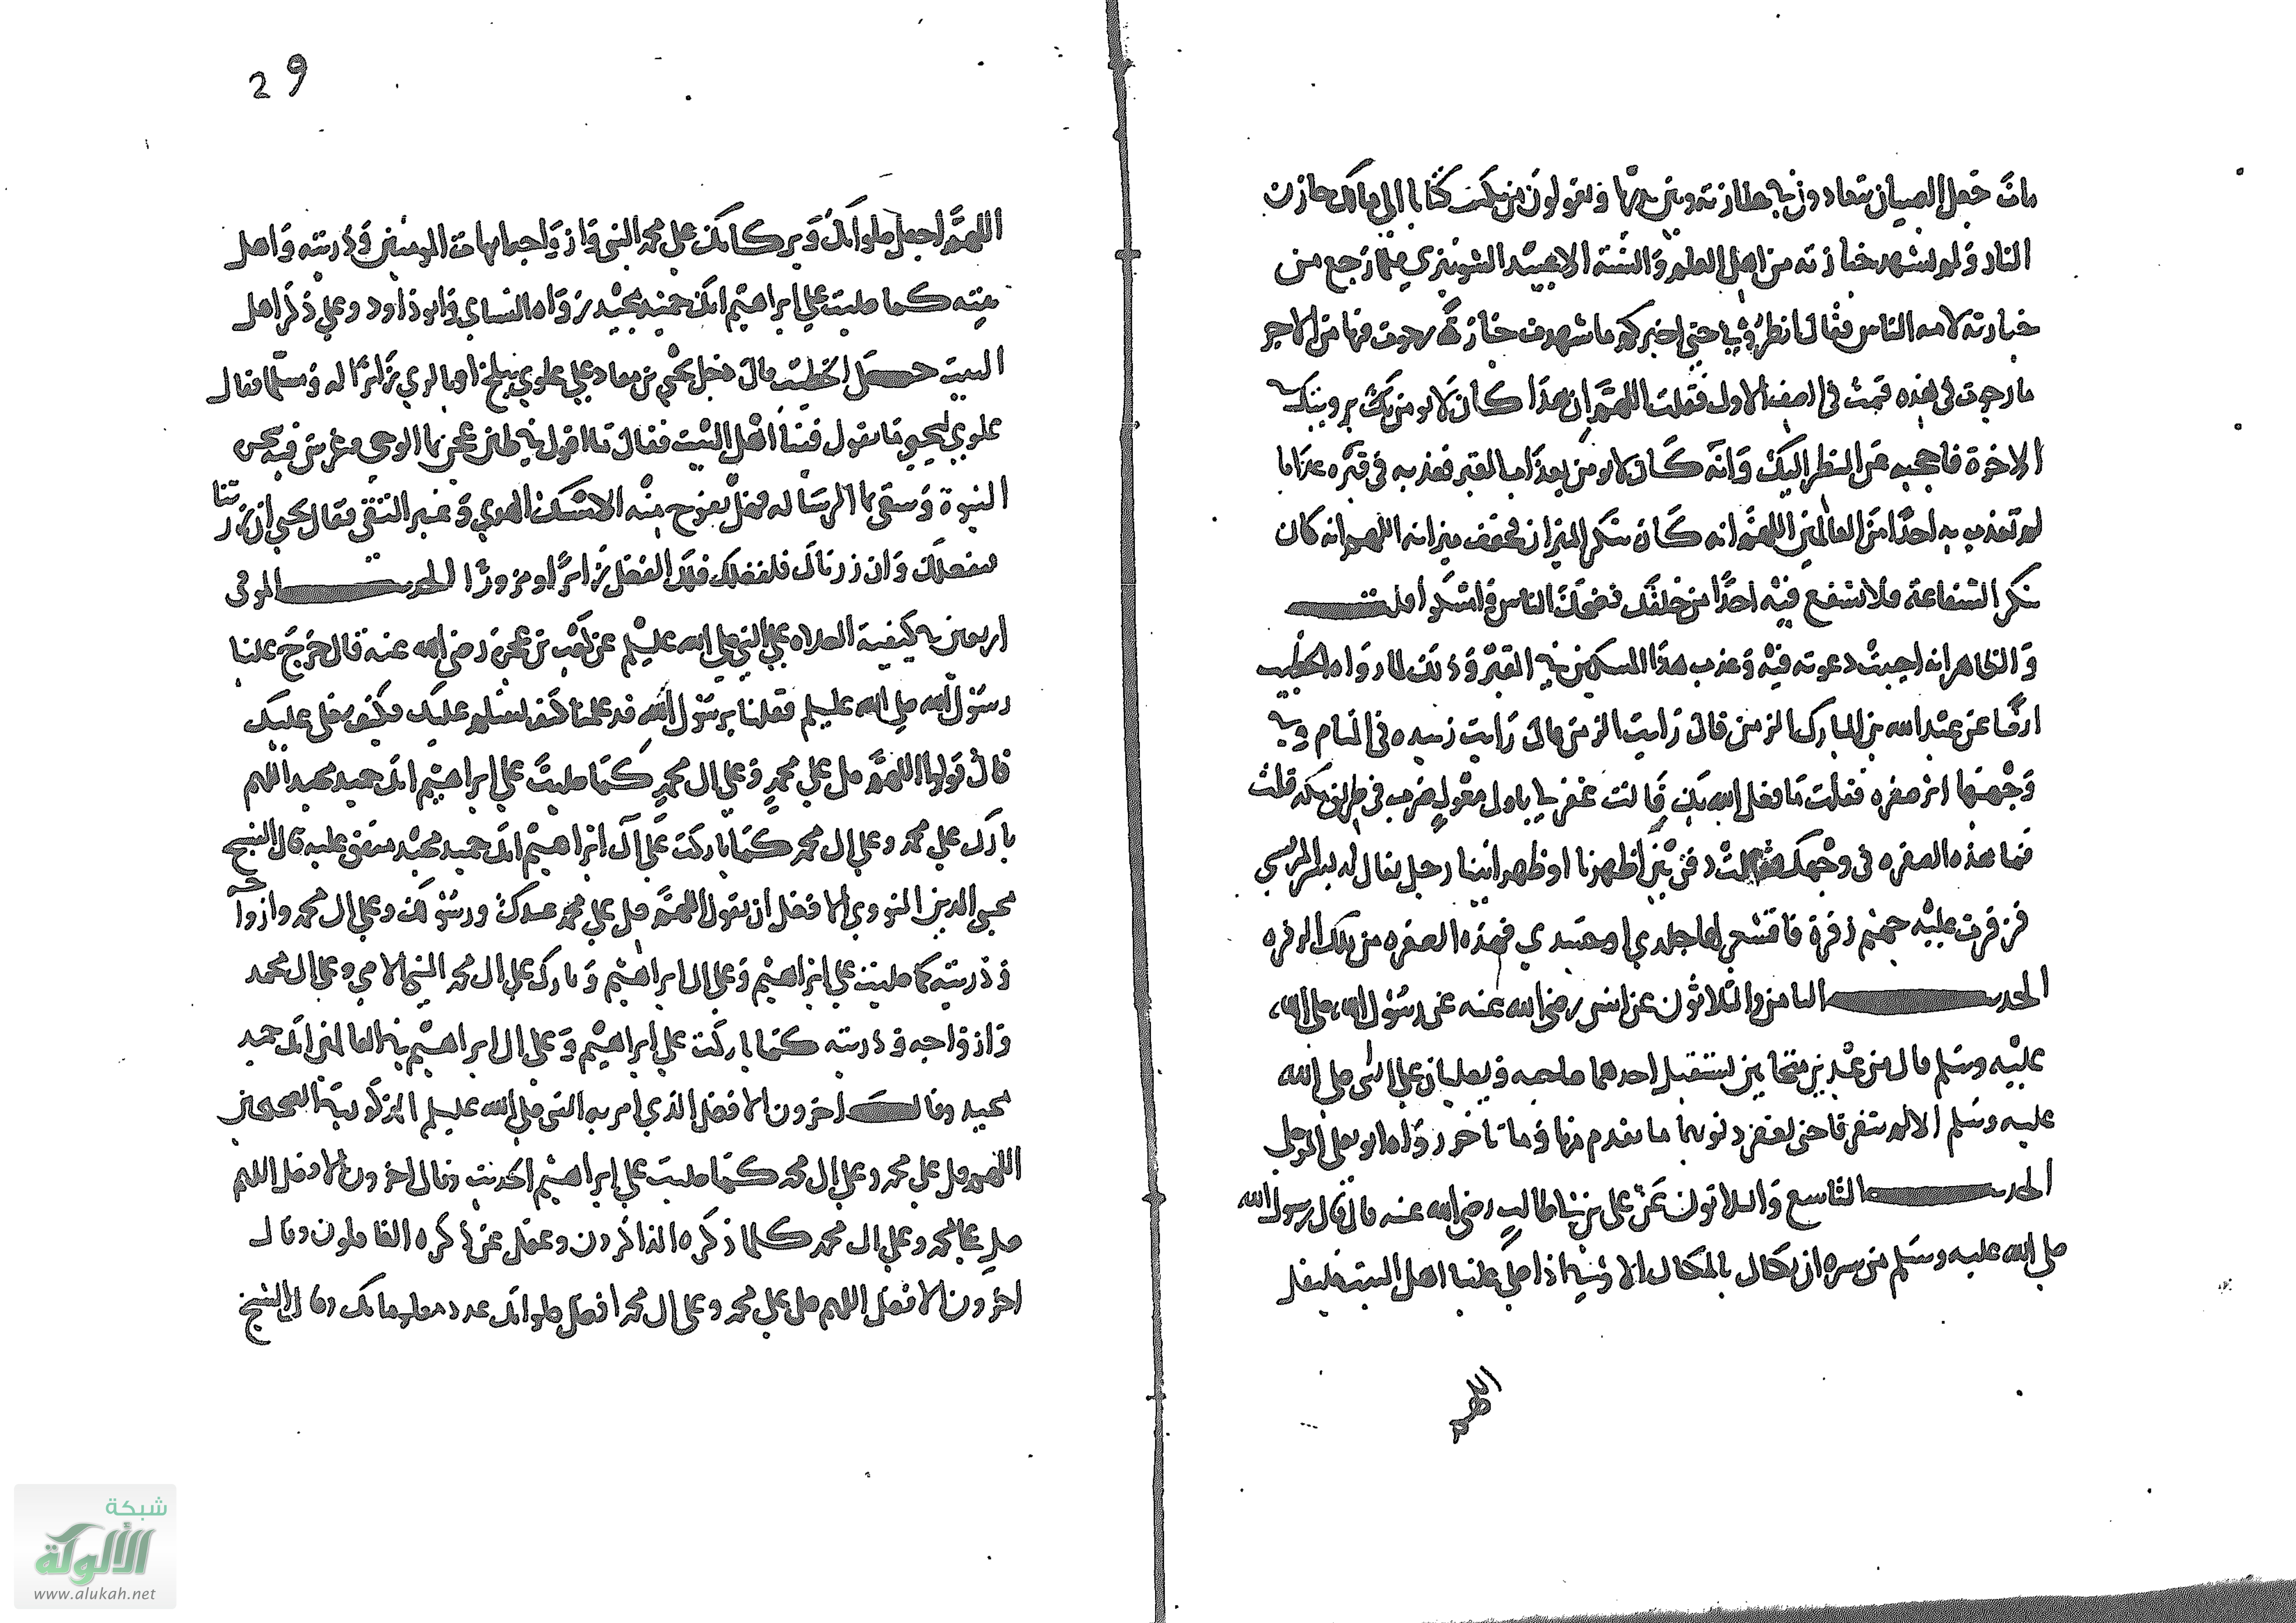 مات جعل الصبيان يتعادون بين يدي جنازته ويقولون من يكتب كتابا الى مالك خازن
النار ولم يشهد جنازته من اهل العلم والسنة الا عبيد الشونيزي فلما رجع من
جنازته لامه الناس فقال انظروني حتى اخبركم ما شهدت جنازة رجوت فيها من الاجر
ما رجوت في هذه قمت في الصف الاول فقلت اللهم ان هذا كان لا يومن بك برويتك في
الاخرة فاحجبه عن النظر اليك وانه كان لا يومن بعذاب القبر فعذبه في قبره عذابا
لم تعذب به احدا من العالمين اللهم انه كان ينكر الميزان فخفف ميزانه اللهم انه كان
ينكر الشفاعة فلا تشفع فيه احدا من خلقك فضحك الناس واشكوا قلت
والظاهر انه اجيبت دعوته فيه وعذب هذا المسكين في القبر وذلك لما رواه الخطيب
ايضا عن عبد الله بن المبارك الزمن قال رايت الزمن قال رايت زبيده في المنام وفي
وجهها اثر صفره فقلت ما فعل الله بك قالت غفر لي باول معول ضرب في طريق مكه قلت
فما هذه الصفره في وجهك قالت دفن بين اظهرنا رجل يقال له بشر المريسي
فزفرت عليه جهنم زفرة فاقشعر لها جلدي فهذه الصفره من تلك الزفره
الحديث الثامن والثلاثون عن انس رضي الله عنه عن رسول الله صلى الله
عليه وسلم قال من عبدين متحابين يستقبل احدهما صاحبه ويصليان على النبي صلى الله
عليه وسلم الا لم يتفرقا حتى يغفر ذنوبهما ما تقدم منها وما تاخر رواه ابو يعلى الموصلي
الحديث التاسع والثلاثون عن علي بن ابي طالب رضي الله عنه قال قال رسول الله
صلى الله عليه وسلم من سره ان يكتال بالمكيال الاوفى اذا صلى علينا اهل البيت فليقل
اللهم
29
اللهم اجعل صلواتك وبركاتك على محمد النبي وازواجه امهات المومنين وذريته واهل
بيته كما صليت على ابراهيم انك حميد مجيد رواه النساي وابو داود وعلى ذكر اهل
البيت حكى الخطيب قال دخل يحيى بن معاد على علوي ببلخ او بالري زائرا له ومسلما فقال
علوي ليحيى ما تقول فينا اهل البيت فقال ما اقول في طين عجن بما الوحي وغرس فيه
النبوة وسقي بما الرسالة فهل يفوح منه الا مسك الهدي وعنبر التقى فقال يحيى ان زرتنا
فبفضلك وان زرناك فلفضلك فلك الفضل زائرا ومزورا الحديث الموفي
اربعين في كيفية الصلاه على النبي صلى الله عليه وسلم عن كعب بن عجرة رضي الله عنه قال خرج علينا
رسول الله صلى الله عليه وسلم فقلنا يرسول الله قد علمنا كيف نسلم عليك فكيف نصلي عليك
قال قولوا اللهم صل على محمد وعلى ال محمد كما صليت على ابراهيم انك حميد مجيد اللهم
بارك على محمد وعلى ال محمد كما باركت على آل ابراهيم انك حميد مجيد متفق عليه قال الشيخ
محيي الدين النووي الافضل ان يقول اللهم صل على محمد عبدك ورسولك وعلى ال محمد وازواجه
وذريته كما صليت على ابراهيم وعلى ال ابراهيم وبارك على ال محمد النبي الامي وعلى ال محمد
وازواجه وذريته كما باركت على ابراهيم وعلى ال ابراهيم في العالمين انك حميد
مجيد وقال اخرون الافضل الذي امر به النبي صلى الله عليه وسلم المذكور في الصحيحين
اللهم صل على محمد وعلى ال محمد كما صليت على ابراهيم الحديث وقال اخرون الافضل اللهم
صل على محمد وعلى ال محمد كلما ذكره الذاكرون وغفل عن ذكره الغافلون وقال
اخرون الافضل اللهم صل على محمد وعلى ال محمد افضل صلواتك عدد معلوماتك وقال الشيخ
شبكة
الألوكة
www.alukah.net